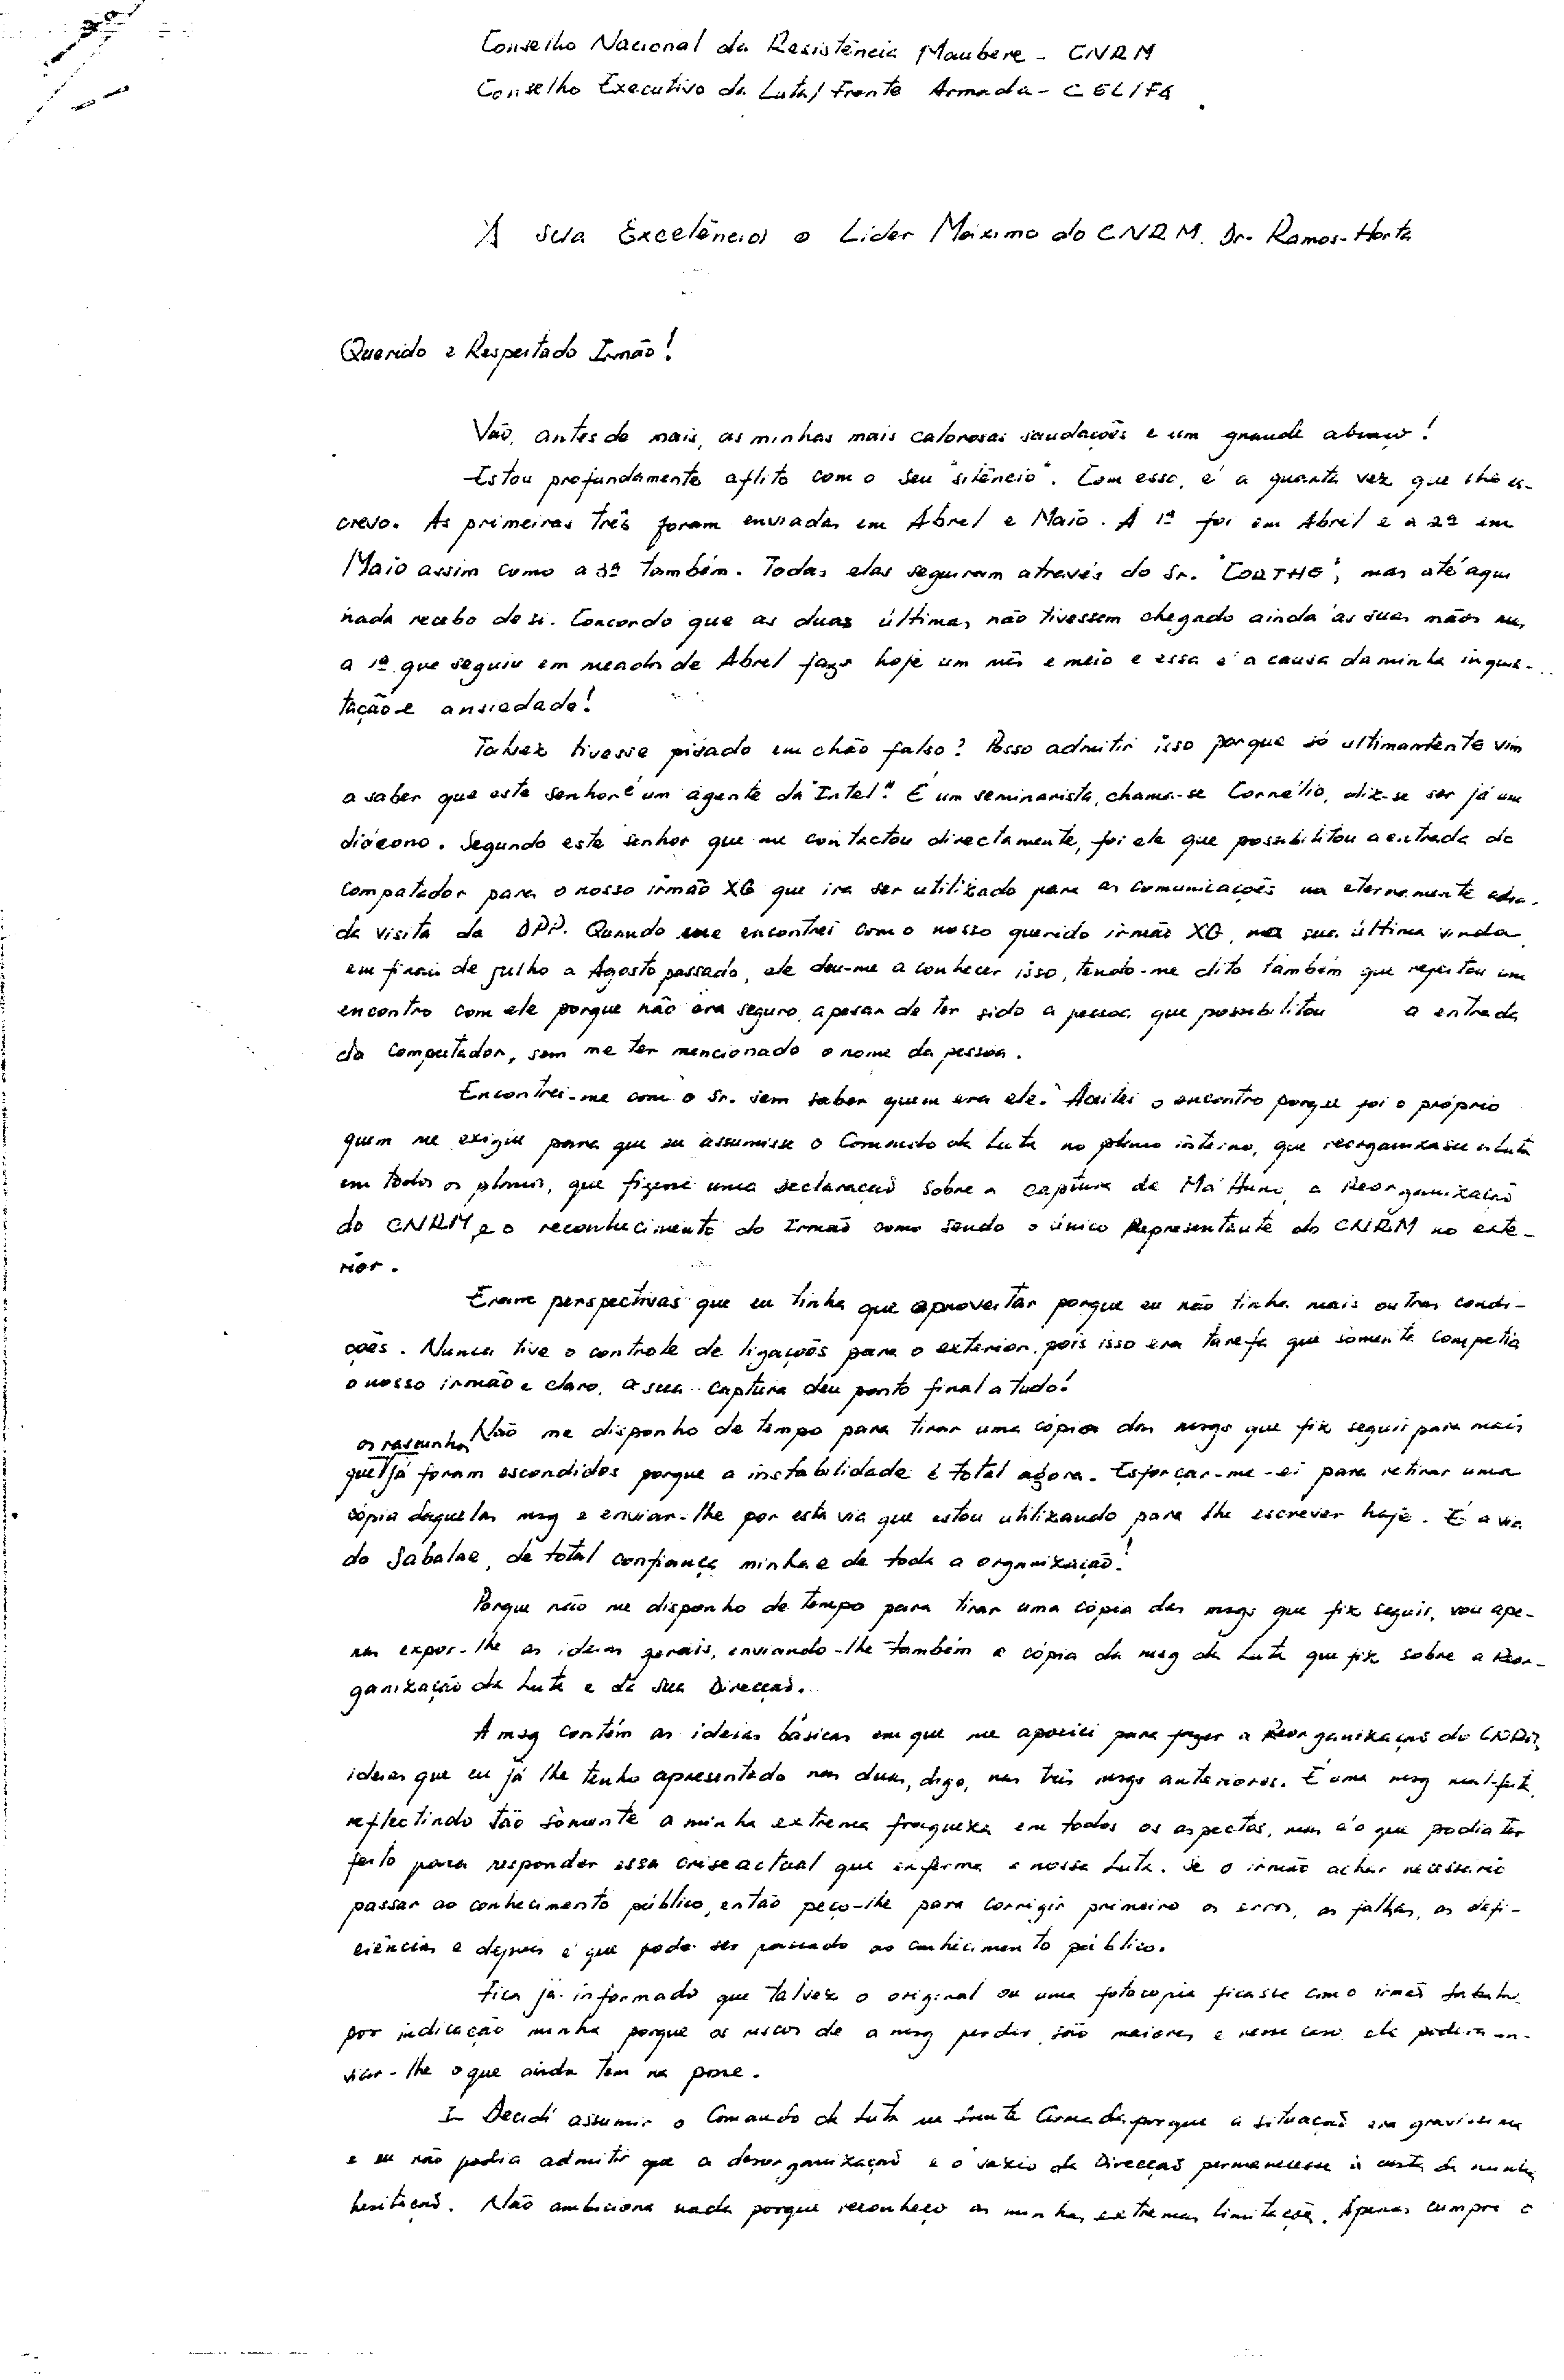 Conselho Nacional da Resistência Maubere - CNRM
Conselho Executivo da Luta/Frente Armada - CELIFA
A Sua Excelência o Lider Máximo do CNRM, Dr. Ramos-Horta
Querido e Respeitado Irmão!
Vão, antes de mais, as minhas mais calorosas saudações e um grande abraço!
Estou profundamente aflito com o seu "silêncio". Com essa, é a quarta vez que lhe es-
crevo. As primeiras três foram enviadas em Abril e Maio. A 1ª foi em Abril e a 2ª em
Maio assim como a 3ª também. Todas elas seguiram através do Sr. "CORTHE", mas até aqui
nada recebo de si. Concordo que as duas últimas não tivessem chegado ainda às suas mãos mas
a 1ª que seguiu em meados de Abril fazo hoje um mês e meio e essa é a causa da minha inquie-
tação e ansiedade!
Talvez tivesse pisado em chão falso? Posso admitir isso porque só ultimamente vim
a saber que este senhor é um agente da "Intel". É um seminarista, chama-se Cornélio, diz-se ser já um
diácono. Segundo este senhor que me contactou directamente, foi ele que possibilitou a entrada do
computador para o nosso irmão XG que ira ser utilizado para as comunicações na eternamente adia-
da visita da DPP. Quando me encontrei com o nosso querido irmão XG, na sua última vinda
em finais de julho a Agosto passado, ele deu-me a conhecer isso, tendo-me dito também que rejeitou um
encontro com ele porque não era seguro, apesar de ter sido a pessoa que possibilitou a entrada
do computador, sem me ter mencionado o nome da pessoa.
Encontrei-me com o Sr. sem saber quem era ele. Aceitei o encontro porque foi o próprio
quem me exigiu para que eu assumisse o Comando da Luta no plano interno, que reorganizasse a Luta
em todos os planos, que fizesse uma declaração sobre a captura de Ma'Hunu, a Reorganização
do CNRM e o reconhecimento do Irmão como sendo o único Representante do CNRM no exte-
rior.
Eram perspectivas que eu tinha que aproveitar porque eu não tinha mais outras condi-
ções. Nunca tive o controle de ligações para o exterior, pois isso era tarefa que somente competia
o nosso irmão e claro, a sua captura deu ponto final a tudo!
Não me disponho de tempo para tirar uma cópia das msgs que fiz seguir para mais
os rascunhos
que já foram escondidos porque a instabilidade é total agora. Esforçar-me-ei para retirar uma
cópia daquelas msg e enviar-lhe por esta via que estou utilizando para lhe escrever hoje. É a via
do Sabalae, de total confiança minha e de toda a organização!
Porque não me disponho de tempo para tirar uma cópia das msgs que fiz seguir, vou ape-
nas expor-lhe as ideias gerais, enviando-lhe também a cópia da msg da Luta que fiz sobre a Reor-
ganização da Luta e da sua Direcção.
A msg contém as ideias básicas em que me apoiei para fazer a Reorganização do CNRM,
ideias que eu já lhe tenho apresentado nas duas, digo, nas três msgs anteriores. É uma msg mal-feita,
reflectindo tão sòmente a minha extrema fraqueza em todos os aspectos, mas é o que podia ter
feito para responder essa crise actual que enferma a nossa Luta. Se o irmão achar necessário
passar ao conhecimento público, então peço-lhe para corrigir primeiro os erros, as falhas, as defi-
ciências e depois é que pode ser passado ao conhecimento público.
Fica já informado que talvez o original ou uma fotocopia ficasse com o irmão Sabalae
por indicação minha porque os riscos de a msg perder são maiores e nesse caso, ele poderá en-
viar-lhe o que ainda tem na posse.
I- Decidi assumir o Comando da Luta na frente Armada porque a situação era gravíssima
e eu não podia admitir que a desorganização e o vazio da Direcção permanecesse à custa da minha
hesitação. Não ambiciono nada porque reconheço as minhas extremas limitações. Apenas cumpri o